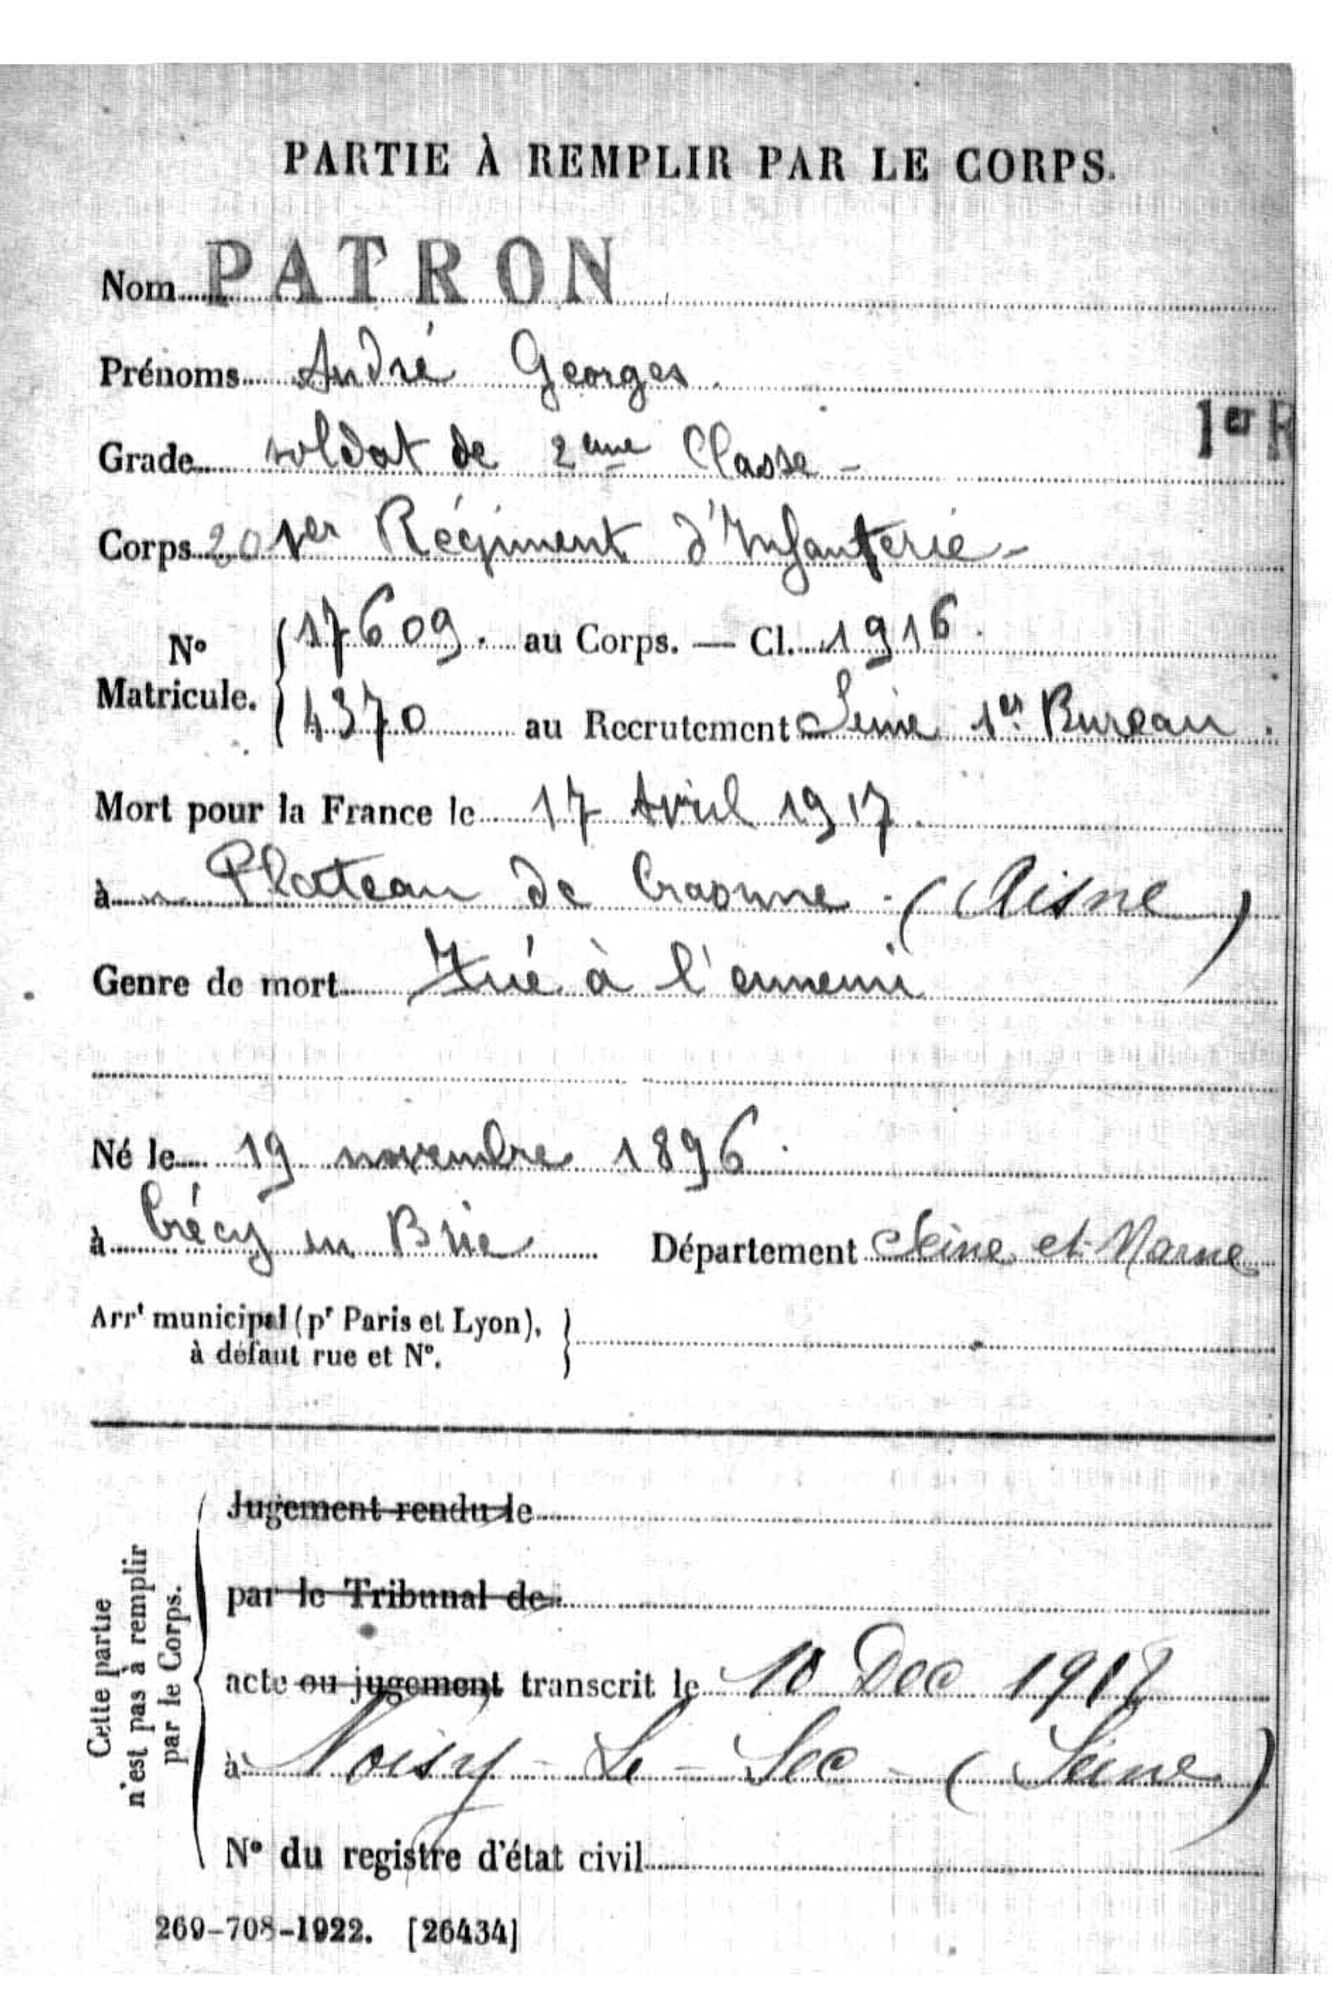 PARTIE À REMPLIR PAR LE CORPS.
Nom PATRON
Prénoms André Georges
1er R
Grade soldat de 2ème Classe -
Corps 201er Régiment d'Infanterie -
N° Matricule. 17609. au Corps. — Cl. 1916.
4370 au Recrutement Seine 1er Bureau.
Mort pour la France le 17 Avril 1917.
à Plateau de Craonne - (Aisne)
Genre de mort Tué à l'ennemi
Né le 19 novembre 1896.
à Crécy en Brie Département Seine et Marne
Arrt municipal (pr Paris et Lyon),
à défaut rue et N°.
Cette partie
n'est pas à remplir
par le Corps.
Jugement rendu le
par le Tribunal de
acte ou jugement transcrit le 10 Dec 1918
à Noisy - Le - Sec - (Seine)
N° du registre d'état civil
269-708-1922. [26434]